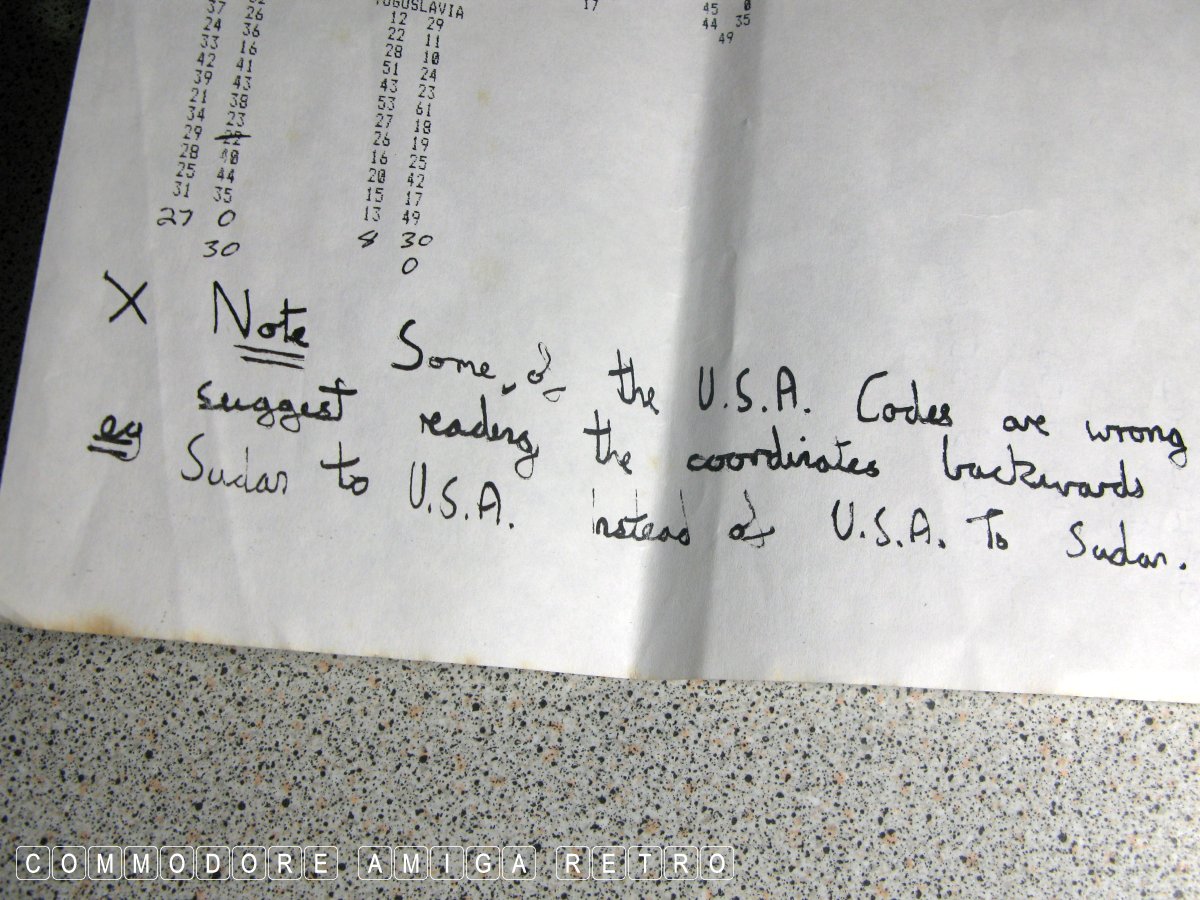 37 26
24 36
33 16
42 41
39 43
21 38
34 23
29 22
28 40
25 44
31 35
27 0
30
YUGOSLAVIA
12 29
22 11
28 10
51 24
43 23
53 61
27 18
26 19
16 25
20 42
15 17
13 49
8 30
0
17
45 0
44 35
49
X Note Some of the U.S.A. Codes are wrong
suggest reading the coordinates backwards
eg Sudan to U.S.A. instead of U.S.A. To Sudan.
COMMODORE AMIGA RETRO